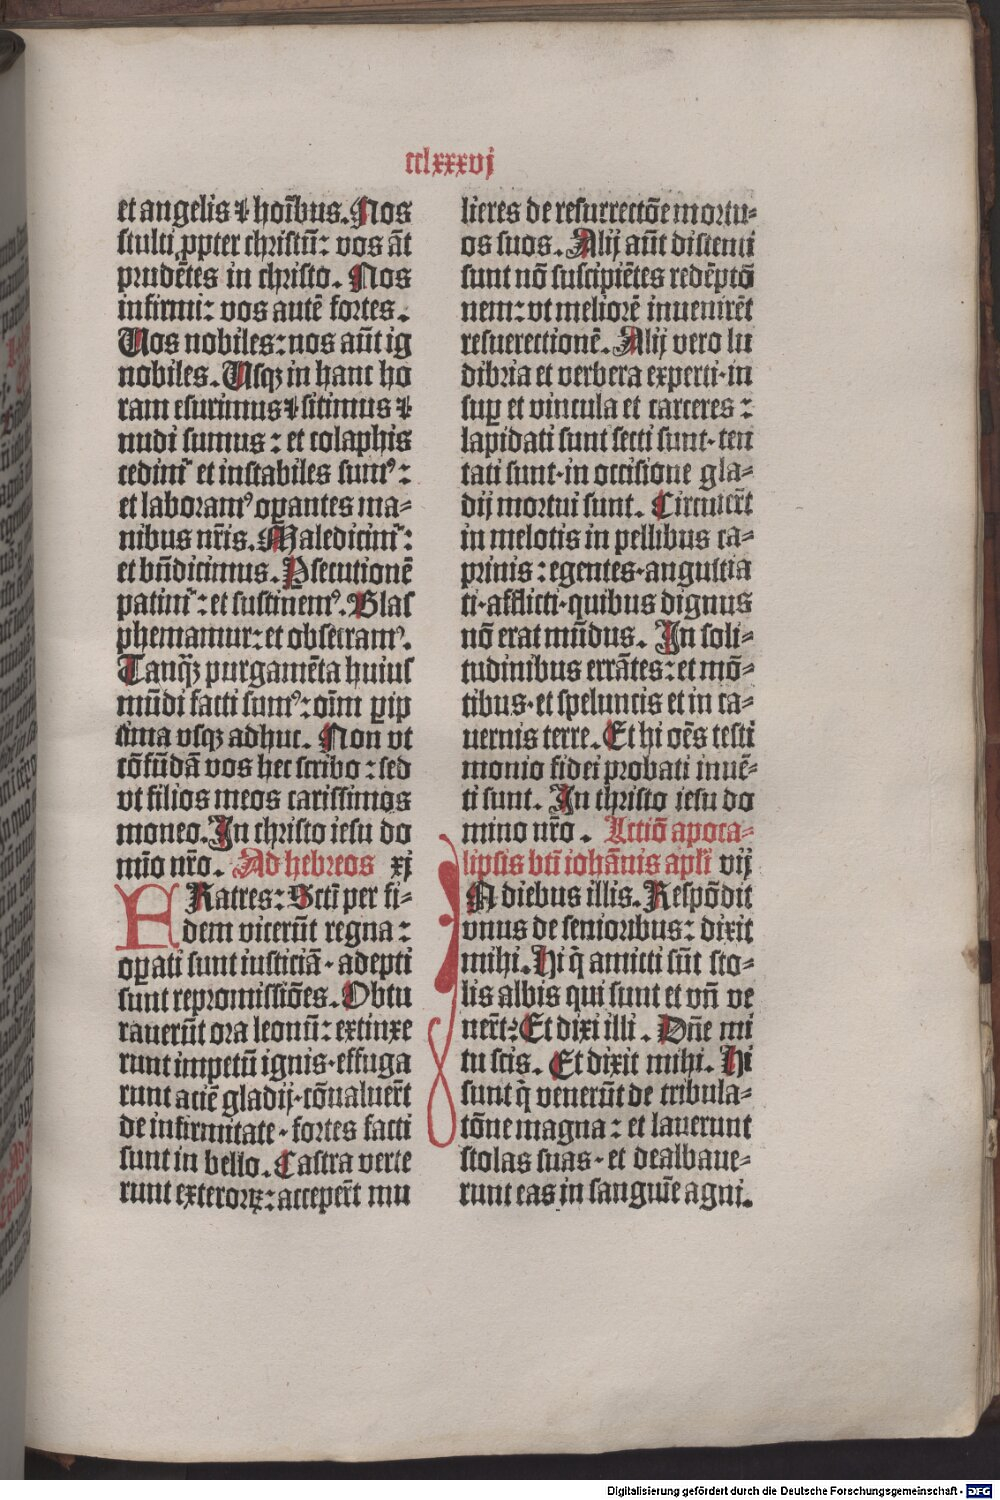 cclxxxvj
et angelis ⁊ hoībus. Nos
stulti ꝓpter christū: vos āt
prudētes in christo. Nos
infirmi: vos autē fortes.
Uos nobiles: nos aūt ig
nobiles. Usqꝫ in hanc ho
ram esurimus ⁊ sitimus ⁊
nudi sumus: et colaphis
cedimᷣ et instabiles sumꝰ:
et laboramꝰ oꝑantes ma-
nibus nr̄is. Maledicimᷣ:
et bn̄dicimus. Ꝑsecutionē
patimᷣ: et sustinemꝰ. Blas
phemamur: et obsecramꝰ.
Tanqꝫ purgamēta huius
mūdi facti sumꝰ: oīm ꝑip
sima vsqꝫ adhuc. Non vt
cōfūdā vos hec scribo: sed
vt filios meos carissimos
moneo. In christo iesu do
mīo nr̄o. Ad hebreos xj
FRatres: Scti per fi-
dem vicerūt regna:
oꝑati sunt iusticiā· adepti
sunt repromissiōes. Obtu
rauerūt ora leonū: extinxe
runt impetū ignis· effuga
runt aciē gladij· cōualuer̄t
de infirmitate· fortes facti
sunt in bello. Castra verte
runt exteroꝝ: acceper̄t mu
lieres de resurrectōe mortu-
os suos. Alij aūt distenti
sunt nō suscipiētes redēptō
nem: vt meliorē inuenirēt
resurrectionē. Alij vero lu
dibria et verbera experti· in
suꝑ et vincula et carceres:
lapidati sunt secti sunt· ten
tati sunt· in occisione gla-
dij mortui sunt. Circuier̄t
in melotis in pellibus ca-
prinis: egentes· angustia
ti· afflicti· quibus dignus
nō erat mūdus. In soli-
tudinibus errātes: et mō-
tibus· et speluncis et in ca-
uernis terre. Et hi oēs testi
monio fidei probati inuē-
ti sunt. In christo iesu do
mino nr̄o. Lctiō apoca-
lipsis bt̄i iohānis apl̄i vij
IN diebus illis. Respōdit
vnus de senioribus: dixit
mihi. Hi q̄ amicti sūt sto-
lis albis qui sunt et vn̄ ve
ner̄t? Et dixi illi. Dn̄e mi
tu scis. Et dixit mihi. Hi
sunt q̄ venerūt de tribula-
tōne magna: et lauerunt
stolas suas· et dealbaue-
runt eas in sanguīe agni.
Digitalisierung gefördert durch die Deutsche Forschungsgemeinschaft - DFG